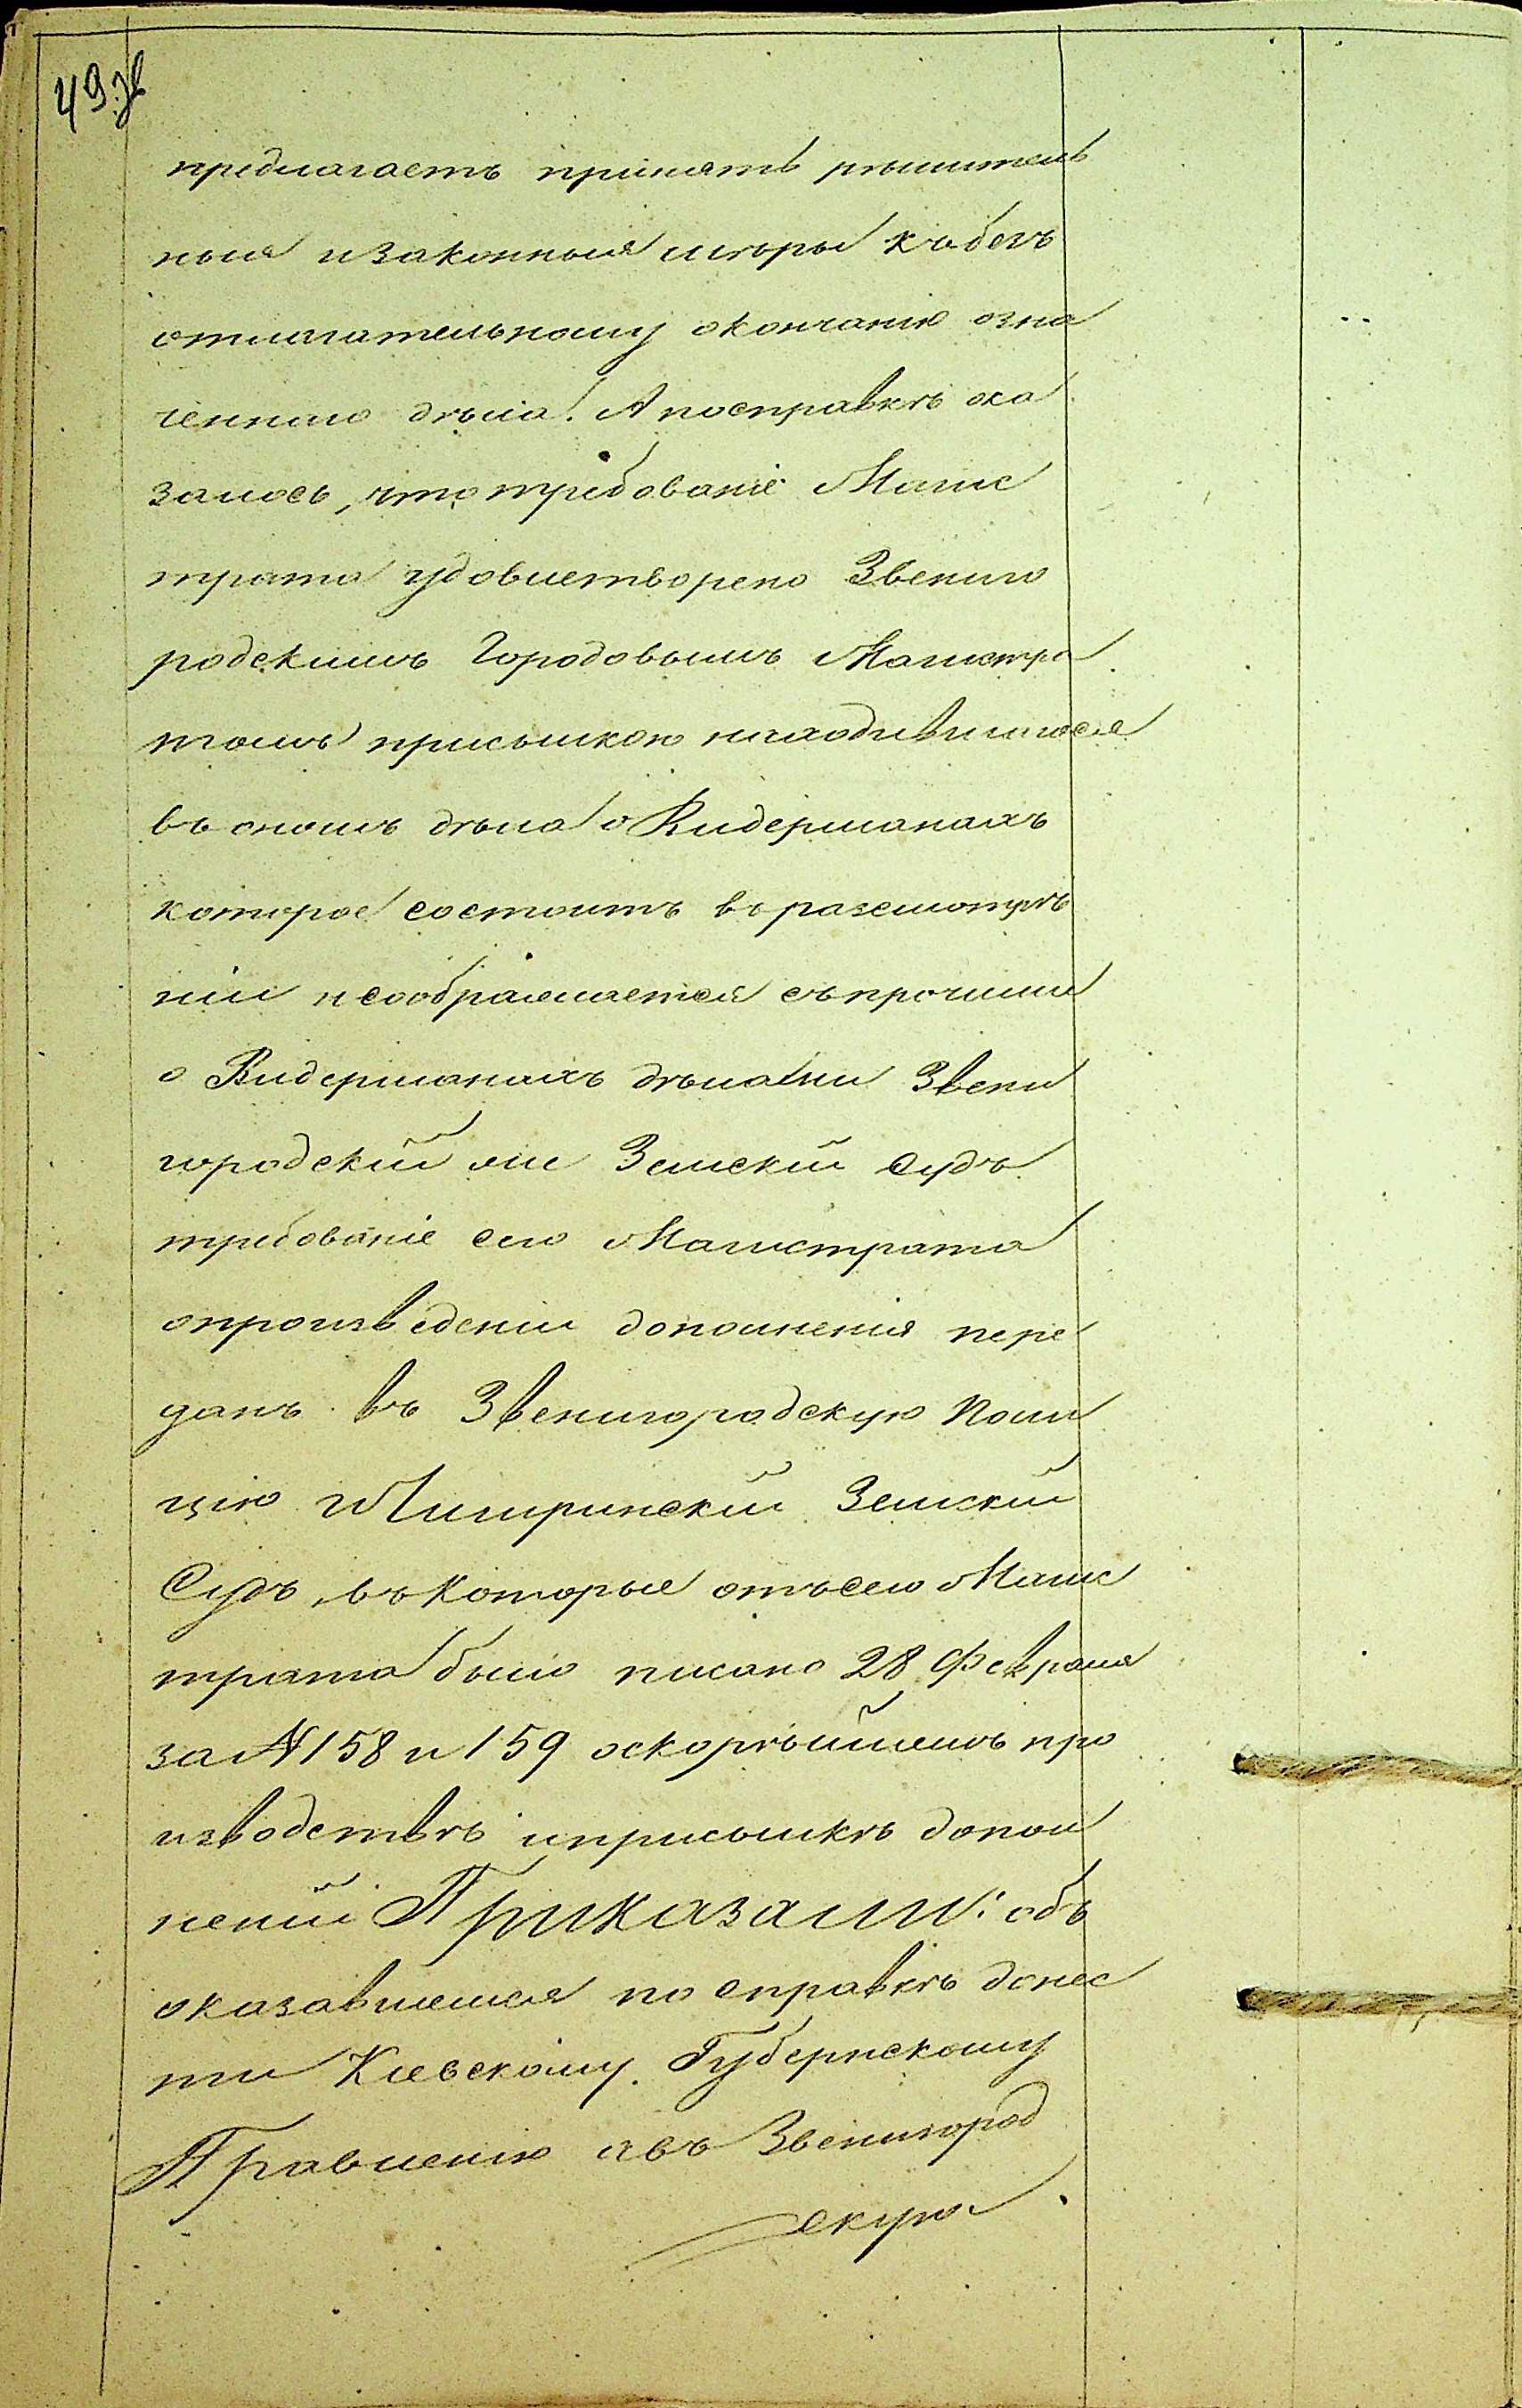 49 зв
предлагаетъ принять рѣшитель
ныя изаконныя мѣры къбезъ
отлагательному окончанію озна
ченнаго дѣла. А посправкѣ ока
залось, что требованіе Магис
трата удовлетворено Звениго
родскимъ Городовымъ Магистра
томъ присылкою находившагося
въ ономъ дѣла о Видерманахъ
которое состоитъ въ разсмотрѣ
ніи и соображается съ прочими
о Видерманахъ дѣлами Звени
городскій же Земскій Судъ
требованіе сего Магистрата
опроизведеніи дополненія пере
далъ въ Звенигородскую Поли
цію Земскій
Судъ, въ которые отъ сего Магис
трата было писано 28 Февраля
за № 158 и 159 оскорѣйшемъ про
изводствѣ и присылкѣ допол
неній Приказали: объ
оказавшемся по справкѣ донес
ти Кіевскому Губернскому
Правленію а въ Звенигород
скую